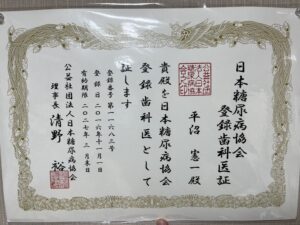 日本糖尿病協会
登録歯科医証
平沼 憲一殿
貴殿を日本糖尿病協会
登録歯科医として
証します
登録番号 第一一六八三号
登録日 二〇一六年十一月一日
有効期限 二〇二七年 三月末日
公益社団法人日本糖尿病協会
理事長 清野 裕